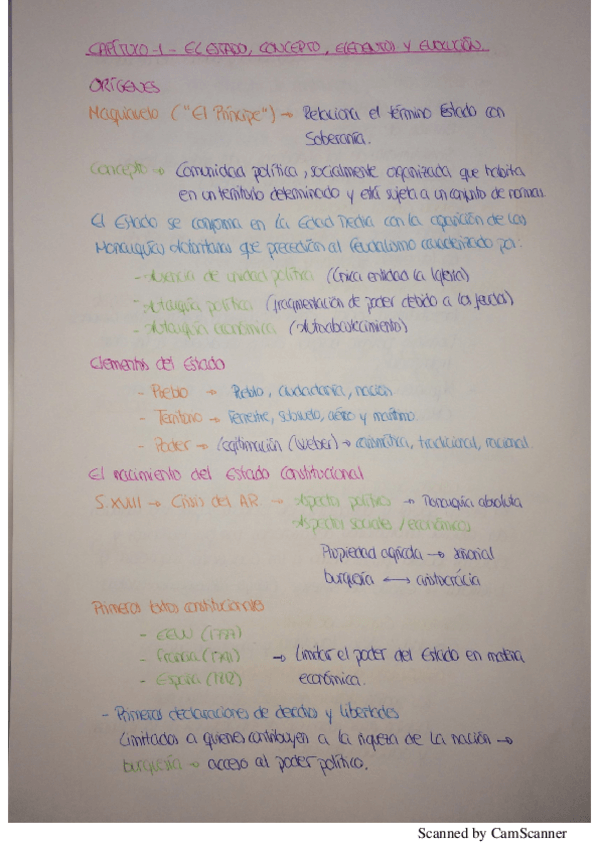 CAPÍTULO-1- EL ESTADO, CONCEPTO, ELEMENTOS Y EVOLUCIÓN.
ORÍGENES
Maquiavelo ("El Príncipe") → Relaciona el término Estado con
Soberanía.
Concepto → Comunidad política, socialmente organizada que habita
en un territorio determinado y está sujeta a un conjunto de normas.
El Estado se conforma en la Edad Media con la aparición de las
Monarquías que precedían al feudalismo caracterizado por:
- Ausencia de unidad política (Única entidad la Iglesia)
- Autarquía política (fragmentación de poder debido a los feudos)
- Autarquía económica (Autoabastecimiento)
Elementos del Estado
- Pueblo → Pueblo, ciudadanía, nación
- Territorio → Terrestre, subsuelo, aéreo y marítimo.
- Poder → Legitimación (Weber) → carismática, tradicional, racional.
El nacimiento del Estado Constitucional
S. XVIII → Crisis del AR. → Aspecto político → Monarquía absoluta
Aspectos sociales / económicos
Propiedad agrícola → señorial
burguesía ⟷ aristocrácia
Primeros textos constitucionales
- EEUU (1787)
- Francia (1791) → Limitar el poder del Estado en materia
- España (1812) económica.
- Primeras declaraciones de derechos y libertades
Limitados a quienes contribuyen a la riqueza de la nación →
burguesía → acceso al poder político.
Scanned by CamScanner